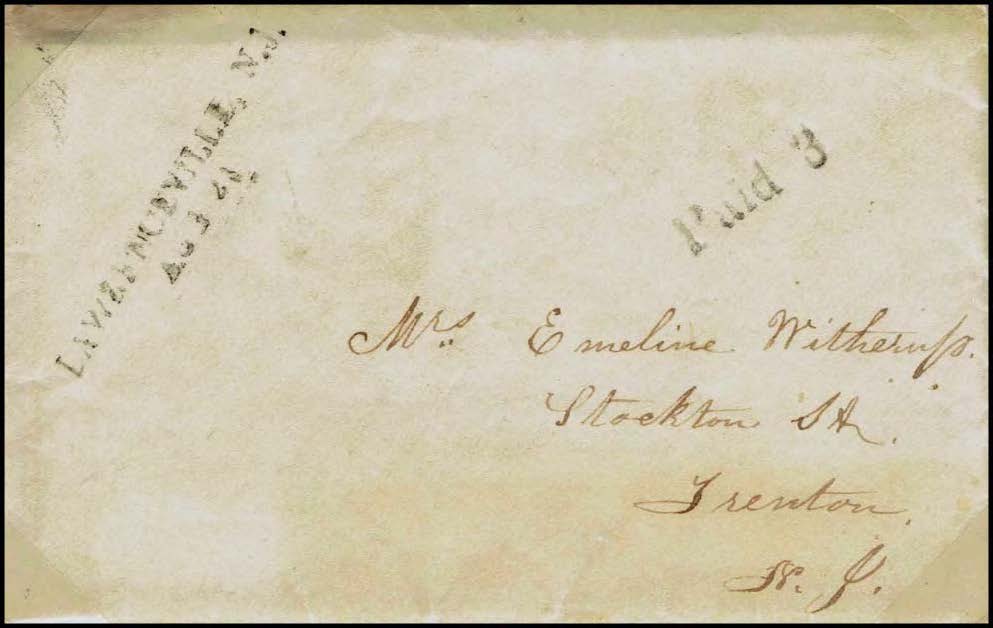 LAWRENCEVILLE, N.J.
Paid 3
Mrs. Emeline Witherup.
Stockton St.
Trenton,
N. J.